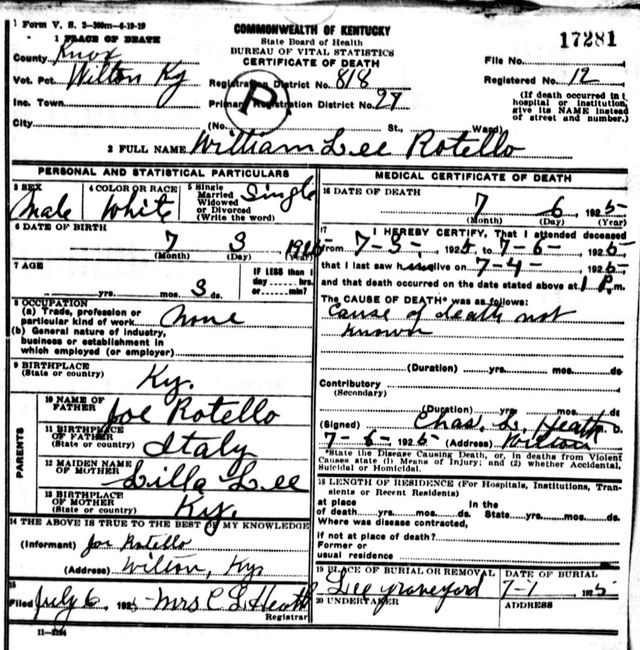 1 Form V. S. 2-300m-4-19-19
COMMONWEALTH OF KENTUCKY
State Board of Health
BUREAU OF VITAL STATISTICS
CERTIFICATE OF DEATH
17281
1 PLACE OF DEATH
County Knox
Vot. Pct. Wilton Ky
Inc. Town
City
Registration District No. 818
Primary Registration District No. 97
(No. St., Ward)
R
File No.
Registered No. 12
(If death occurred in
hospital or institution,
give its NAME instead
of street and number.)
2 FULL NAME William Lee Rotello
PERSONAL AND STATISTICAL PARTICULARS
3 SEX Male
4 COLOR OR RACE White
5 Single Married Widowed or Divorced (Write the word) Single
6 DATE OF BIRTH 7 3 1925
(Month) (Day) (Year)
7 AGE yrs. mos. 3 ds.
IF LESS than 1
day hrs.
or min?
8 OCCUPATION
(a) Trade, profession or
particular kind of work None
(b) General nature of industry,
business or establishment in
which employed (or employer)
9 BIRTHPLACE
(State or country) Ky.
PARENTS
10 NAME OF
FATHER Joe Rotello
11 BIRTHPLACE
OF FATHER
(State or country) Italy
12 MAIDEN NAME
OF MOTHER Lilla Lee
13 BIRTHPLACE
OF MOTHER
(State or country) Ky.
14 THE ABOVE IS TRUE TO THE BEST OF MY KNOWLEDGE
(Informant) Joe Rotello
(Address) Wilton, Ky
15
Filed July 6, 1925 Mrs C L Heath
Registrar
11-3184
MEDICAL CERTIFICATE OF DEATH
16 DATE OF DEATH
7 6 1925
(Month) (Day) (Year)
17 I HEREBY CERTIFY, That I attended deceased
from 7-3-, 1925, to 7-6-, 1925
that I last saw h alive on 7-4-, 1925
and that death occurred on the date stated above at 1 P.m.
The CAUSE OF DEATH* was as follows:
Cause of death not
known
(Duration) yrs. mos. ds.
Contributory
(Secondary)
(Duration) yrs. mos. ds.
(Signed) Chas. L. Heath M. D.
7-6-1925 (Address) Wilton
*State the Disease Causing Death, or, in deaths from Violent
Causes state (1) Means of Injury; and (2) whether Accidental,
Suicidal or Homicidal.
18 LENGTH OF RESIDENCE (For Hospitals, Institutions, Tran-
sients or Recent Residents)
at place In the
of death yrs. mos. ds. State yrs. mos. ds.
Where was disease contracted,
if not at place of death?
Former or
usual residence
19 PLACE OF BURIAL OR REMOVAL
Lee graveyard
DATE OF BURIAL
7-7, 1925
20 UNDERTAKER
ADDRESS